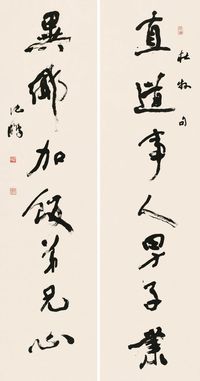 直道事人男子業
杜牧句
異鄉加飯弟兄心
沈鵬